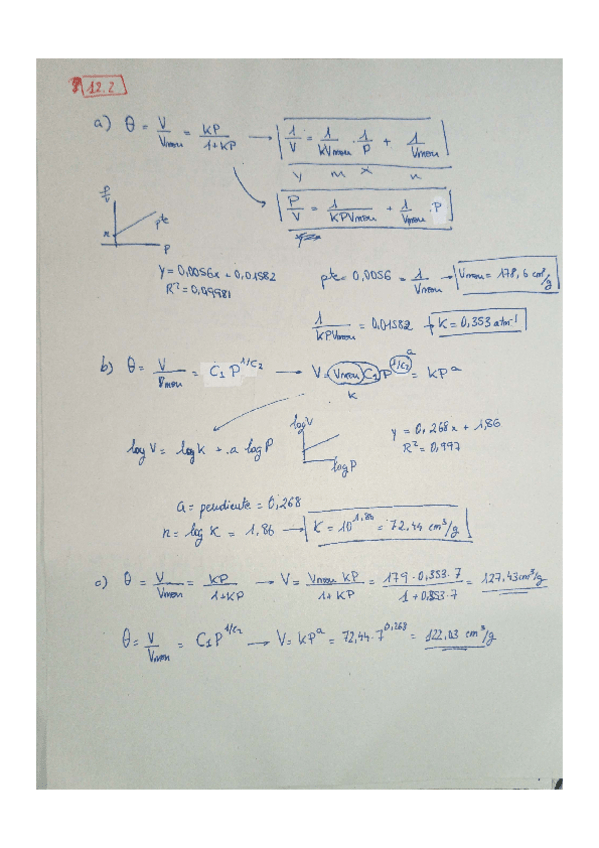 12.2
a) θ = V/Vmon = KP/1+KP → 1/V = 1/KVmon · 1/P + 1/Vmon
y m x n
P/V = 1/KPVmon + 1/Vmon · P
P/V
n
pte
P
y = 0,0056x + 0,01582
R² = 0,99981
pte = 0,0056 = 1/Vmon → Vmon = 178,6 cm³/g
1/KPVmon = 0,01582 → K = 0,353 atm⁻¹
b) θ = V/Vmon = C₁ P^1/C₂ → V = Vmon C₁ P^1/C₂ = KPᵃ
a
K
log V = log K + a log P
log V
log P
y = 0,268x + 1,86
R² = 0,997
a = pendiente = 0,268
n = log K = 1,86 → K = 10^1,86 = 72,44 cm³/g
c) θ = V/Vmon = KP/1+KP → V = Vmon KP/1+KP = 179·0,353·7/1+0,353·7 = 127,43 cm³/g
θ = V/Vmon = C₁P^1/C₂ → V = KPᵃ = 72,44·7^0,268 = 122,03 cm³/g